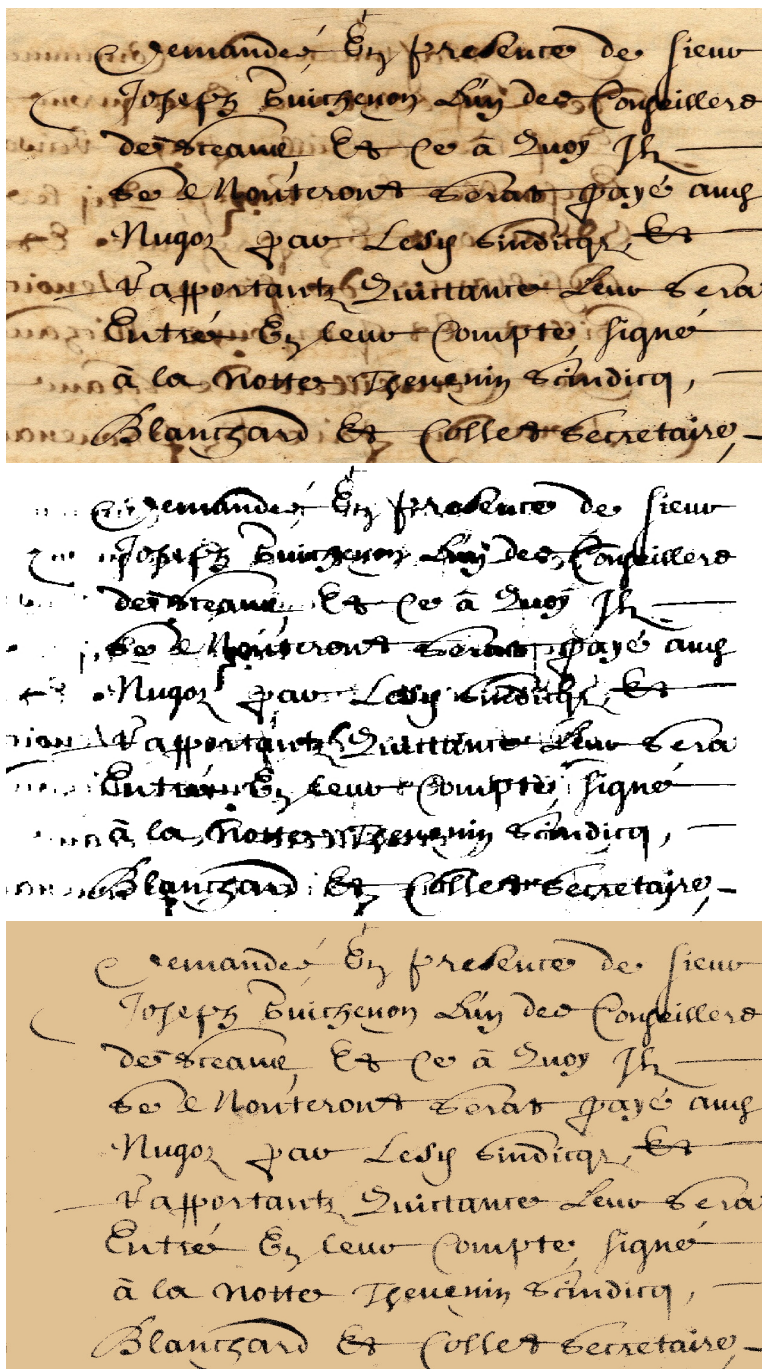 Demandeé En presence de sieur
Joseph Guichenon L'un des Conseillers
Et Ce à Quoy Ilz
se Monteront Serat payé
par Lesd Sindicqz, Et
Rapportantz Quittance Leur Sera
Entré En leur Compte, signé
à la Notte Thevenin Scindicq,
Blanchard Et Collet Secretaire,
Demandeé En presence de sieur
Joseph Guichenon L'un des Conseillers
Et Ce à Quoy Ilz
se Monteront Serat payé
par Lesd Sindicqz, Et
Rapportantz Quittance Leur Sera
Entré En leur Compte, signé
à la Notte Thevenin Scindicq,
Blanchard Et Collet Secretaire,
Demandeé En presence de sieur
Joseph Guichenon L'un des Conseillers
Et Ce à Quoy Ilz
se Monteront Serat payé
par Lesd Sindicqz, Et
Rapportantz Quittance Leur Sera
Entré En leur Compte, signé
à la Notte Thevenin Scindicq,
Blanchard Et Collet Secretaire,